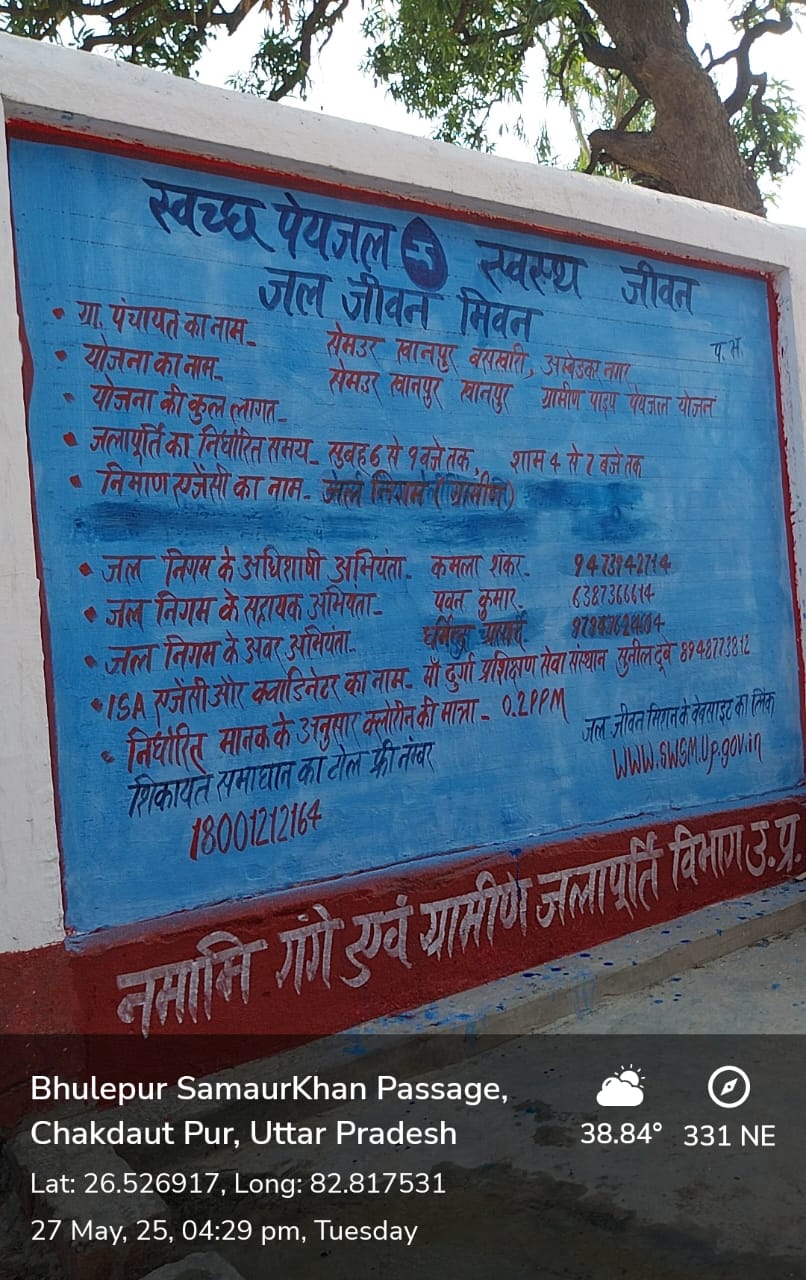 स्वच्छ पेयजल स्वस्थ जीवन
जल जीवन मिवन
प. अ.
• ग्रा. पंचायत का नाम_ सेमउर खानपुर बसखारी, अम्बेडकर नगर
• योजना का नाम_ सेमउर खानपुर खानपुर ग्रामीण पाइप पेयजल योजनं
• योजना की कुल लागत_
• जलापूर्ति का निर्धारित समय_ सुबह 6 से 9 बजे तक, शाम 4 से 7 बजे तक
• निमाण एजेंसी का नाम_ जल निगम (ग्रामीण)
• जल निगम के अधिशाषी अभियंता_ कमला शंकर_ 9473942714
• जल निगम के सहायक अभियंता_ पवन कुमार_ 6387366614
• जल निगम के अवर अभियंता_
• ISA एजेंसी और क्वाडिनेटर का नाम_ माँ दुर्गा प्रशिक्षण सेवा संस्थान सुनील दूबे 8948773812
• निर्धारित मानक के अनुसार क्लोरीन की मात्रा_ 0.2PPM
जल जीवन मिशन के वेबसाइट का लिंक
www.swsm.up.gov.in
शिकायत समाधान का टोल फ्री नंम्बर
18001212164
नमामि गंगे एवं ग्रामीण जलापूर्ति विभाग उ.प्र.
Bhulepur SamaurKhan Passage,
Chakdaut Pur, Uttar Pradesh
38.84° 331 NE
Lat: 26.526917, Long: 82.817531
27 May, 25, 04:29 pm, Tuesday